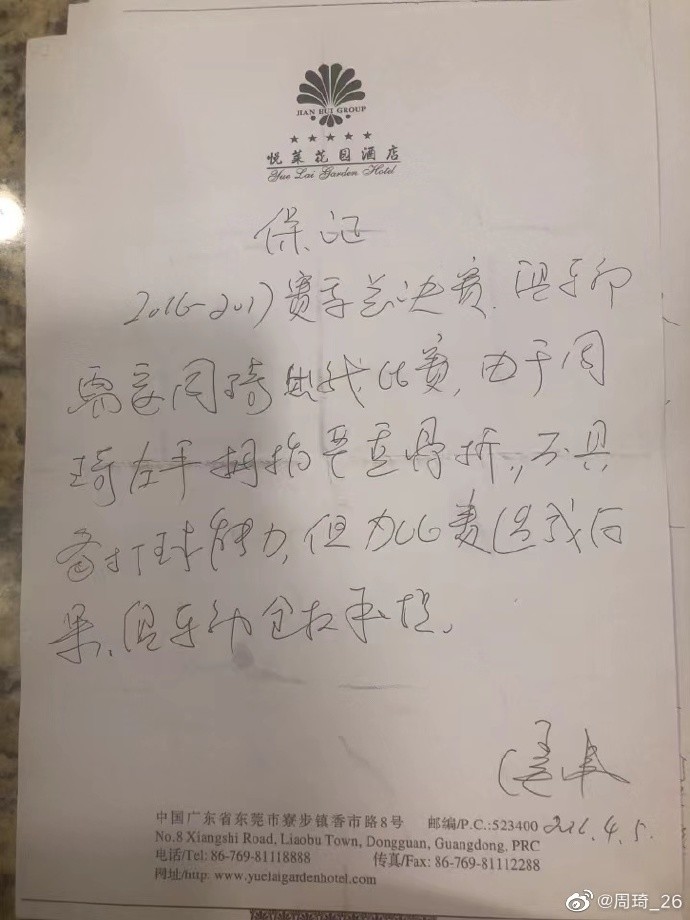 JIAN HUI GROUP
★ ★ ★ ★ ★
悦莱花园酒店
Yue Lai Garden Hotel
保证
2016-2017赛季总决�,俱乐部
需要周琦出战比赛,由于周
琦左手拇指严重骨折,不具
备打球能力,但为比赛造成后
果,俱乐部全权承担。
中国广东省东莞市寮步镇香市路8号 邮编/P.C.:523400
2016.4.5.
No.8 Xiangshi Road, Liaobu Town, Dongguan, Guangdong, PRC
电话/Tel: 86-769-81118888 传真/Fax: 86-769-81112288
网址/http: www.yuelaigardenhotel.com
@周琦_26